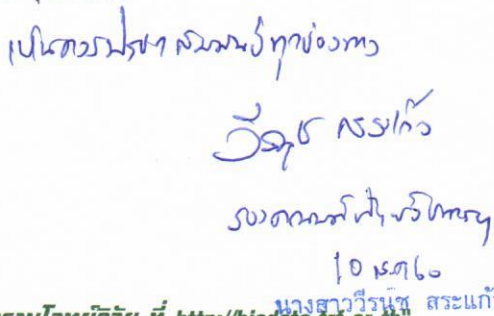 เห็นควรประชาสัมพันธ์ทุกช่องทาง
วีรนุช สระแก้ว
รองคณบดีฝ่ายวิชาการฯ
10 พ.ค. 60
นางสาววีรนุช สระแก้ว
ที่ http://